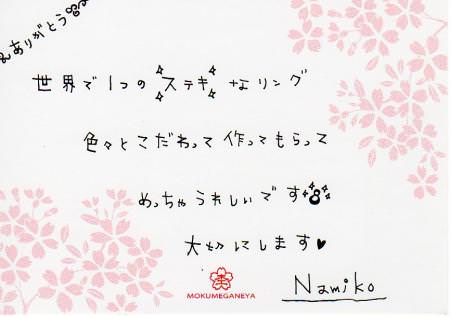 ありがとう
世界で1つのステキなリング
色々とこだわって作ってもらって
めっちゃうれしいです
大切にします♥
Namiko
MOKUMEGANEYA